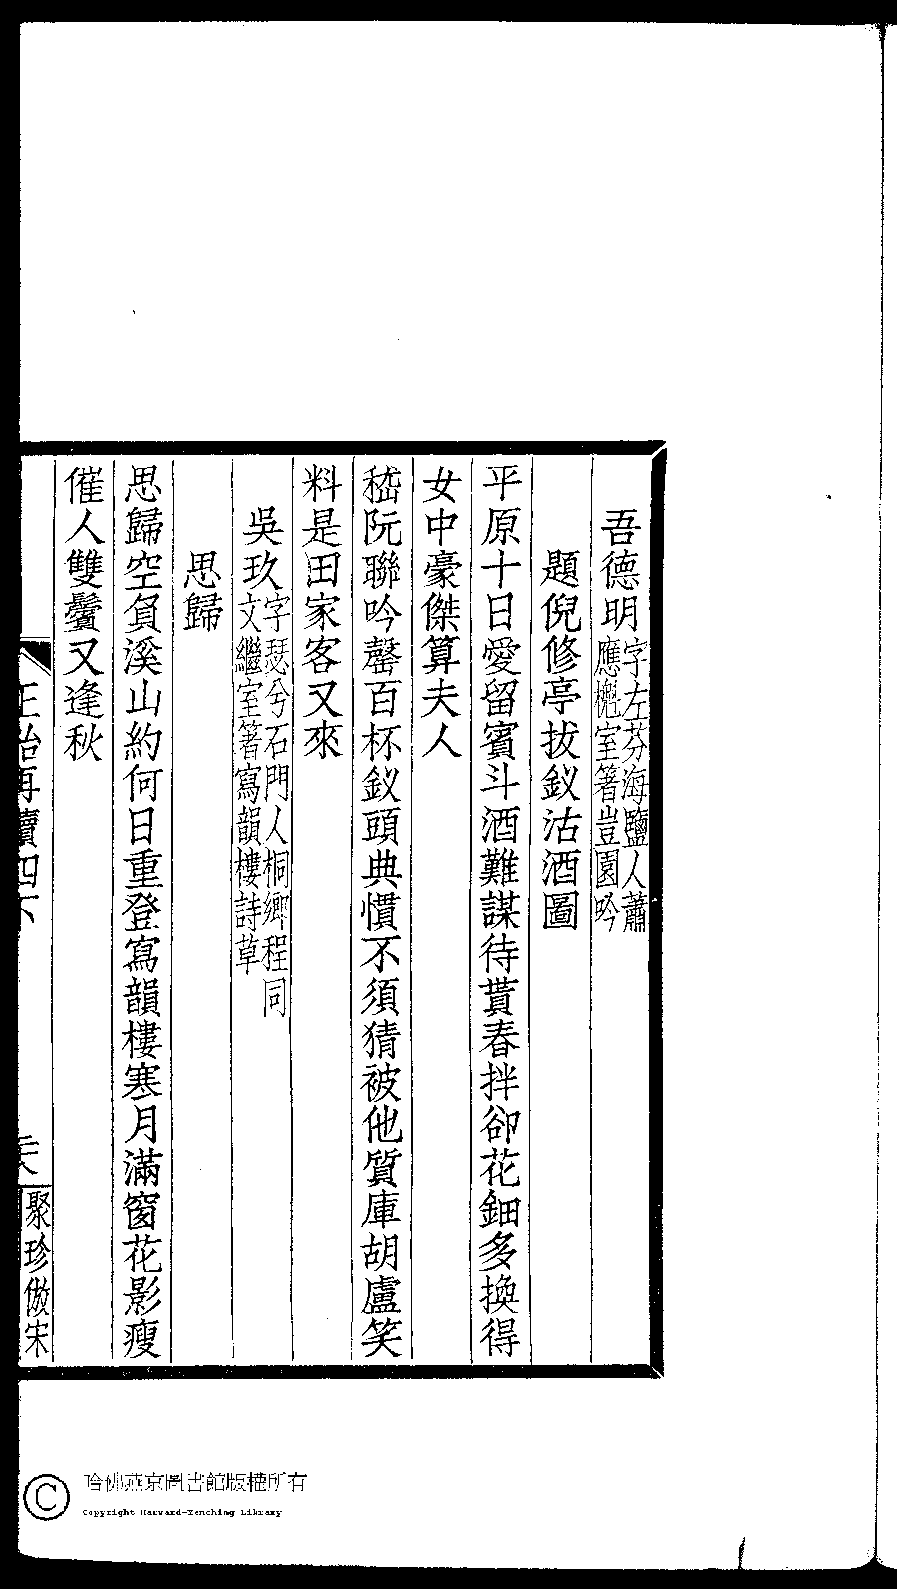 吾德明字左芬海鹽人蕭
應樾室箸豈園吟
題倪修亭拔釵沽酒圖
平原十日愛留賓斗酒難謀待貰春拌卻花鈿多換得
女中豪傑算夫人
嵇阮聯吟罄百杯釵頭典慣不須猜被他質庫胡盧笑
料是田家客又來
吳玖字瑟兮石門人桐鄉程同
文繼室箸寫韻樓詩草
思歸
思歸空負溪山約何日重登寫韻樓寒月滿窗花影瘦
催人雙鬢又逢秋
正始再續四下
聚珍倣宋
哈佛燕京圖書館版權所有
Copyright Harvard-Yenching Library